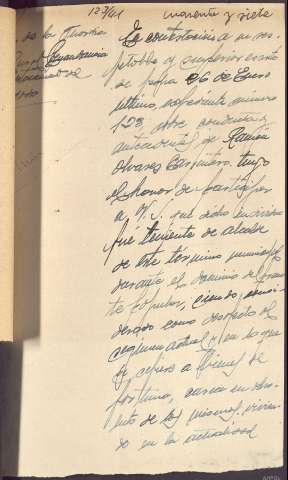 123/41
cuarenta y siete
En contestación a su res-
petable y superior escrito
de fecha 26 de Enero
último, expediente número
123 sobre conducta y
antecedentes de Ramón
Olvares, tengo
el honor de participar
a V.S. que dicho individuo
fué teniente de alcalde
de este término municipal
durante el dominio del Fren-
te Popular, siendo consi-
derado como desafecto al
régimen actual y en lo que
se refiere a bienes de
fortuna, carece en abso-
luto de los mismos, vivien-
do en la actualidad